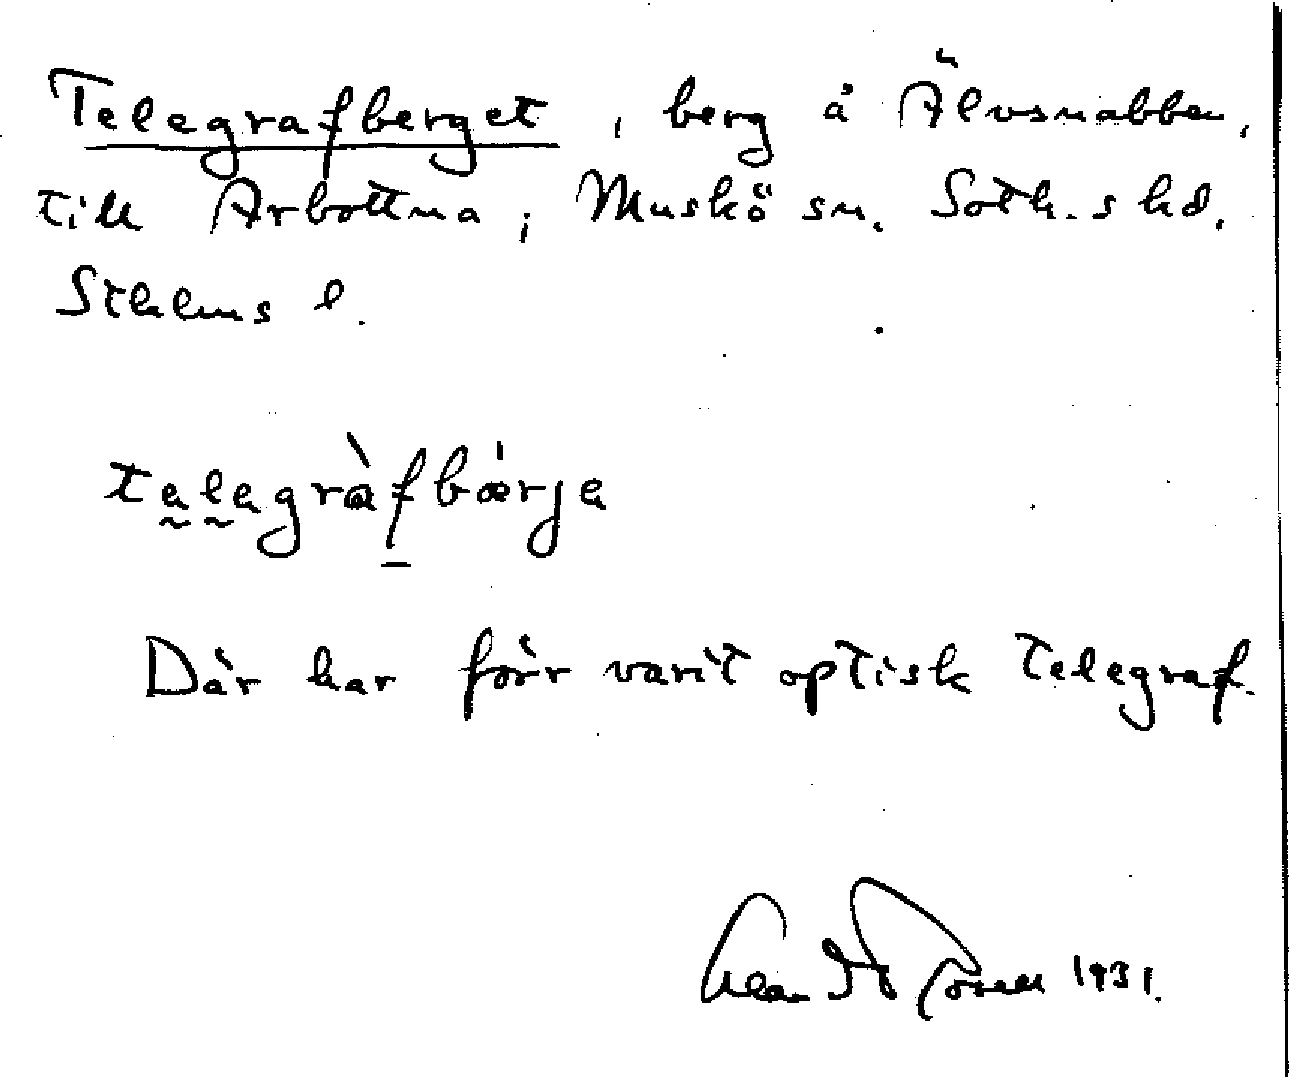 Telegrafberget, berg å Älvsnabben,
till Arbottna, Muskö sn. Soth.s hd.
Sthlms l.
telegràfbærje
Där har förr varit optisk telegraf.
1931.